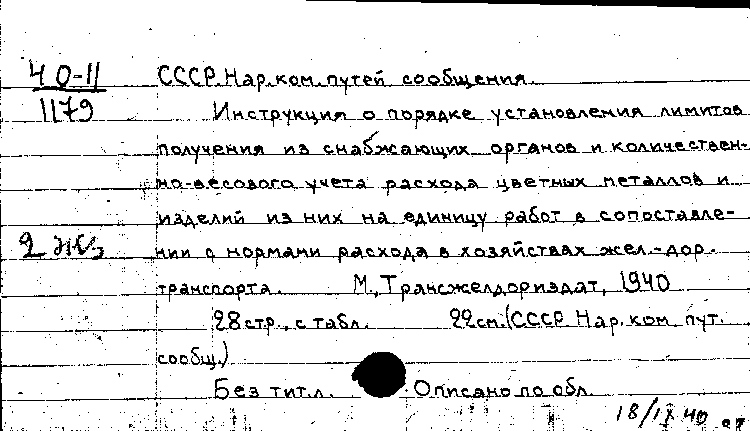 40-11
1179
СССР. Нар. ком. путей сообщения.
Инструкция о порядке установления лимитов
получения из снабжающих органов и количествен-
но-весового учета расхода цветных металлов и
изделий из них на единицу работ в сопоставле-
нии с нормами расхода в хозяйствах жел.-дор.
транспорта. М., Трансжелдориздат, 1940
28 стр., с табл. 22 см. (СССР. Нар. ком. пут.
сообщ.)
Без тит. л. Описано по обл.
2 экз
18/IX 40